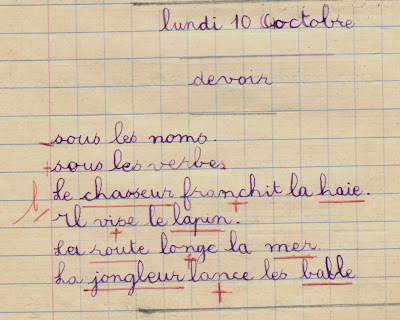 lundi 10 octobre
devoir
_ sous les noms.
+ sous les verbes
Le chasseur franchit la haie.
Il vise le lapin.
La route longe la mer.
La jongleur lance les balle